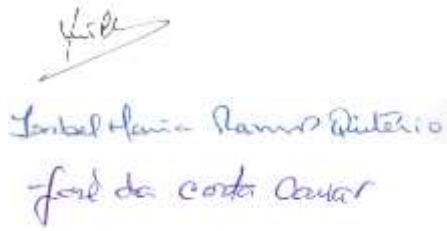 Isabel Maria Ramos Quitério
José da Costa